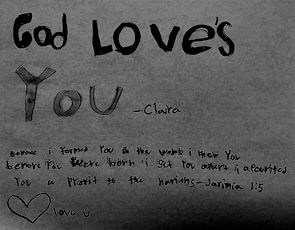 God LOVe's
YOU -Clara
Before i formed You in the womb i knew You
before You were born i set You apart i apointed
You a profit to the nations-Jarimia 1:5
love u